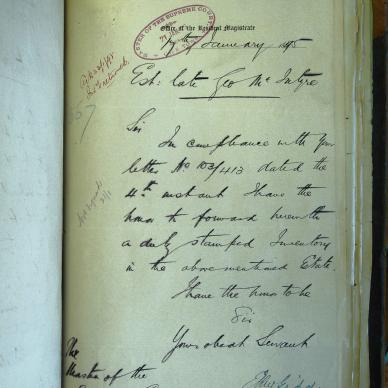 MASTER OF THE SUPREME COURT
Office of the Resident Magistrate
17th January 1895
Est: late Geo McIntyre
Sir
In compliance with your
letter No 103/413 dated the
4th instant I have the
honor to forward herewith
a duly stamped Inventory
in the above mentioned Estate
I have the honor to be
Sir
Your obedt Servant
The
Master of the